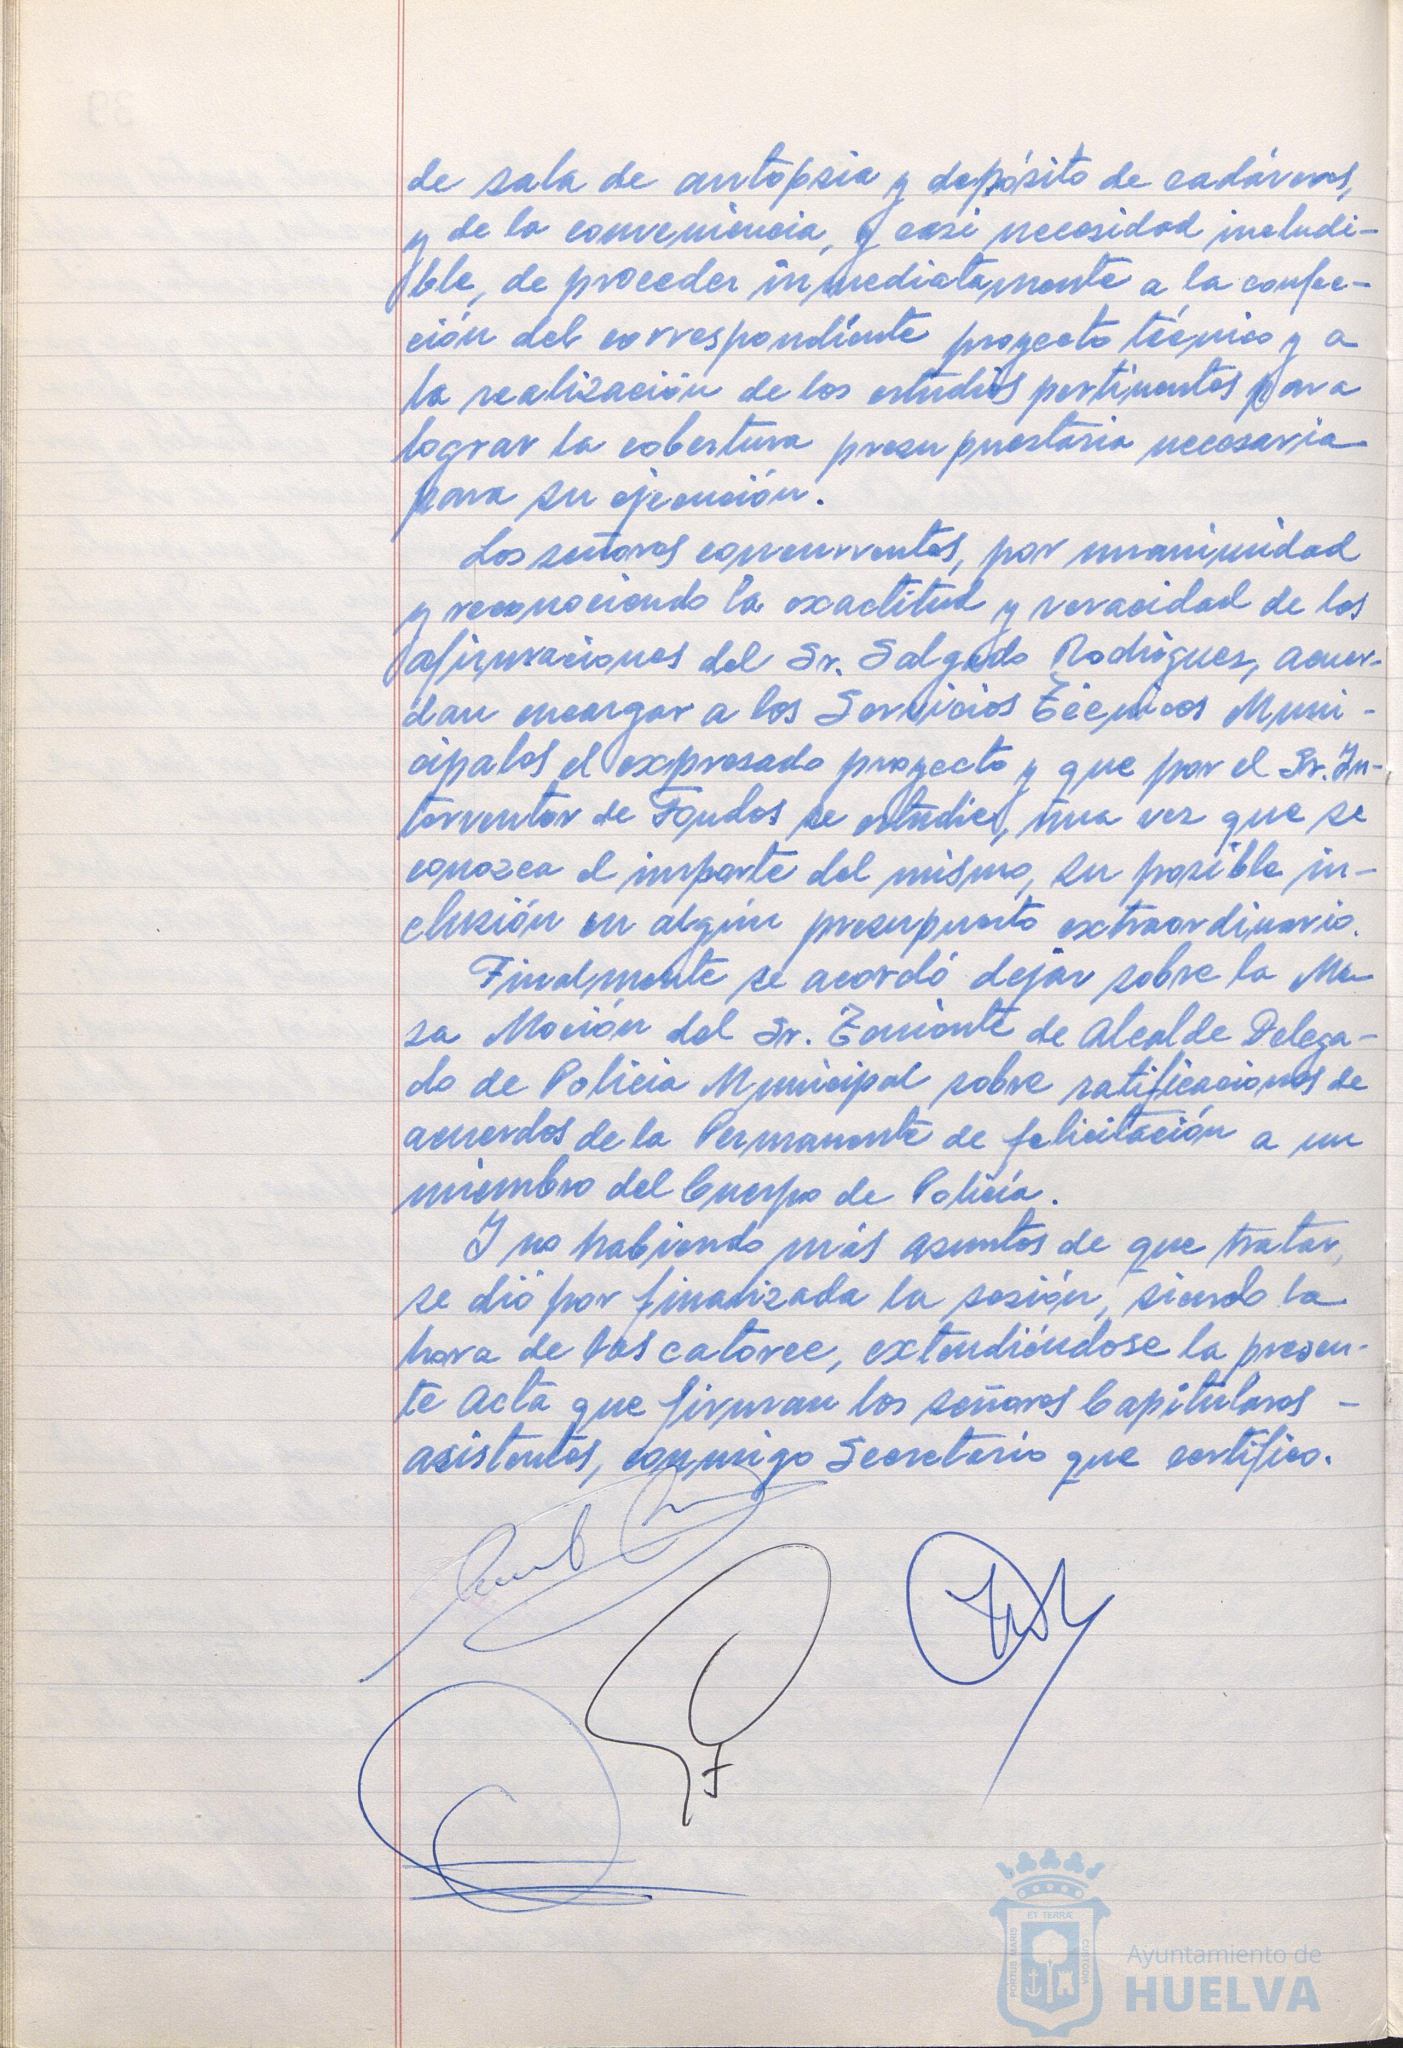 de sala de autopsia y depósito de cadáveres,
y de la conveniencia, y casi necesidad ineludi-
ble, de proceder inmediatamente a la confec-
ción del correspondiente proyecto técnico y a
la realización de los estudios pertinentes para
lograr la cobertura presupuestaria necesaria
para su ejecución.
Los señores concurrentes, por unanimidad
y reconociendo la exactitud y veracidad de los
afirmaciones del Sr. Salgado Rodriguez, acuer-
dan encargar a los Servicios Técnicos Muni-
cipales el expresado proyecto y que por el Sr. In-
terventor de Fondos se estudie, una vez que se
conozca el importe del mismo, su posible in-
clusión en algún presupuesto extraordinario.
Finalmente se acordó dejar sobre la Me
sa Moción del Sr. Teniente de Alcalde Delega-
do de Policia Municipal sobre ratificaciones de
acuerdos de la Permanente de felicitación a un
miembro del Cuerpo de Policía.
Y no habiendo más asuntos de que tratar,
se dió por finalizada la sesión, siendo la
hora de las catorce, extendiéndose la presen-
te Acta que firman los señores Capitulares -
asistentes, conmigo Secretario que certifico.
ET TERRÆ
PORTUS MARIS
CUSTODIA
Ayuntamiento de
HUELVA